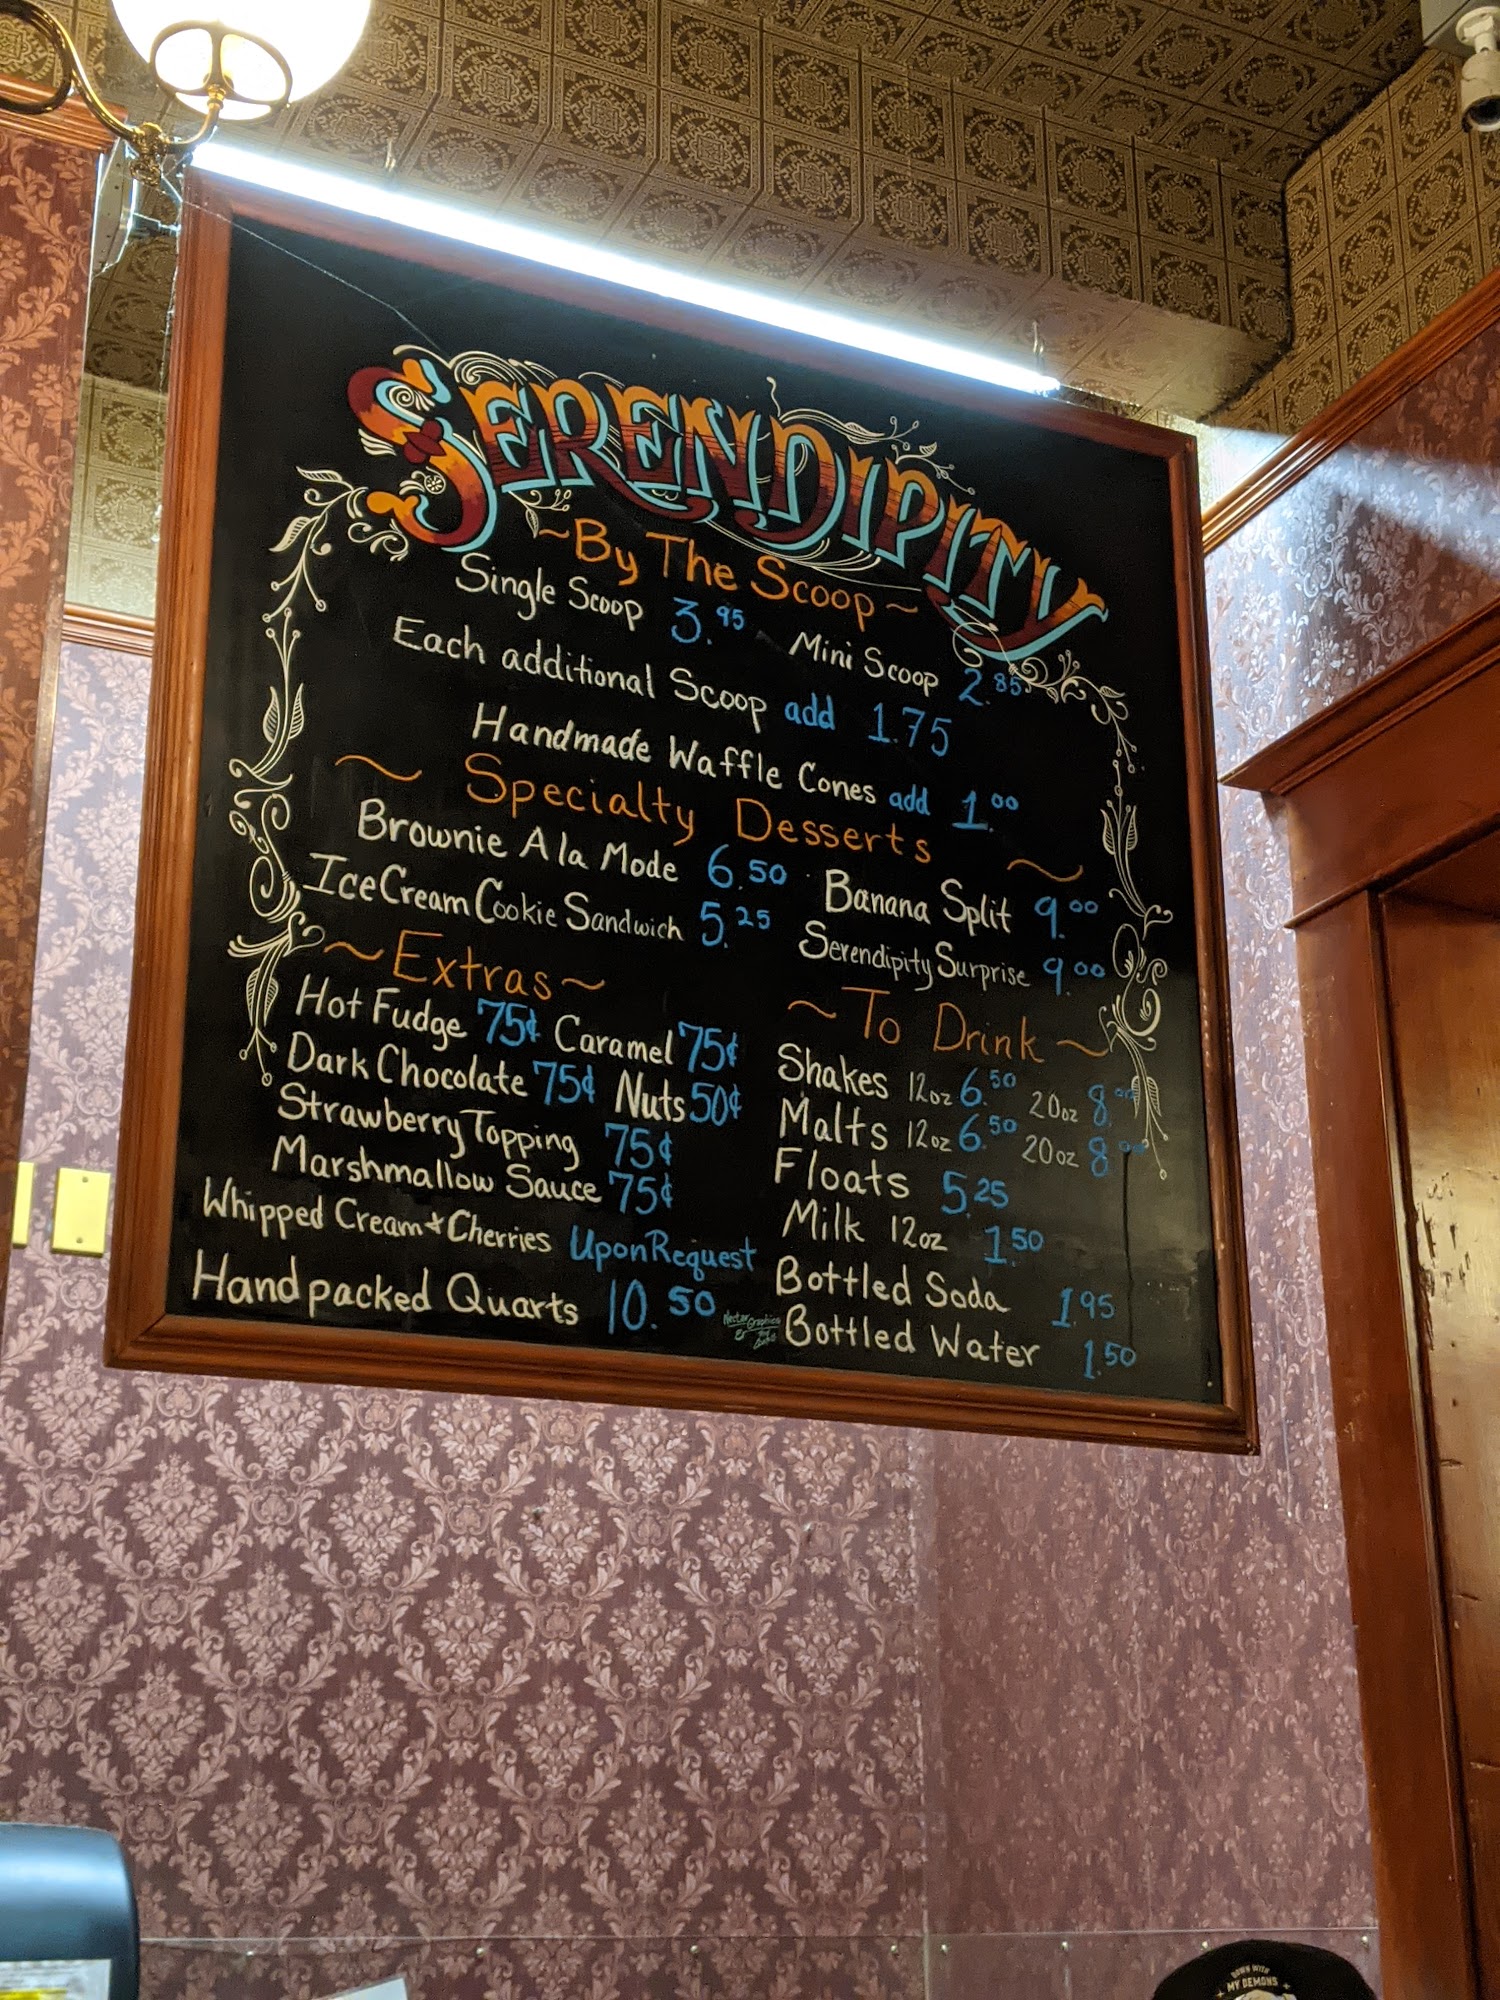 SERENDIPITY
~By The Scoop~
Single Scoop 3.95 Mini Scoop 2.85
Each additional Scoop add 1.75
Handmade Waffle Cones add 1.00
~ Specialty Desserts ~
Brownie A la Mode 6.50 Banana Split 9.00
Ice Cream Cookie Sandwich 5.25 Serendipity Surprise 9.00
~Extras~
Hot Fudge 75¢ Caramel 75¢
Dark Chocolate 75¢ Nuts 50¢
Strawberry Topping 75¢
Marshmallow Sauce 75¢
Whipped Cream + Cherries Upon Request
Hand packed Quarts 10.50
~To Drink~
Shakes 12oz 6.50 20oz 8.00
Malts 12oz 6.50 20oz 8.00
Floats 5.25
Milk 12oz 1.50
Bottled Soda 1.95
Bottled Water 1.50
DOWN WITH
MY DEMONS